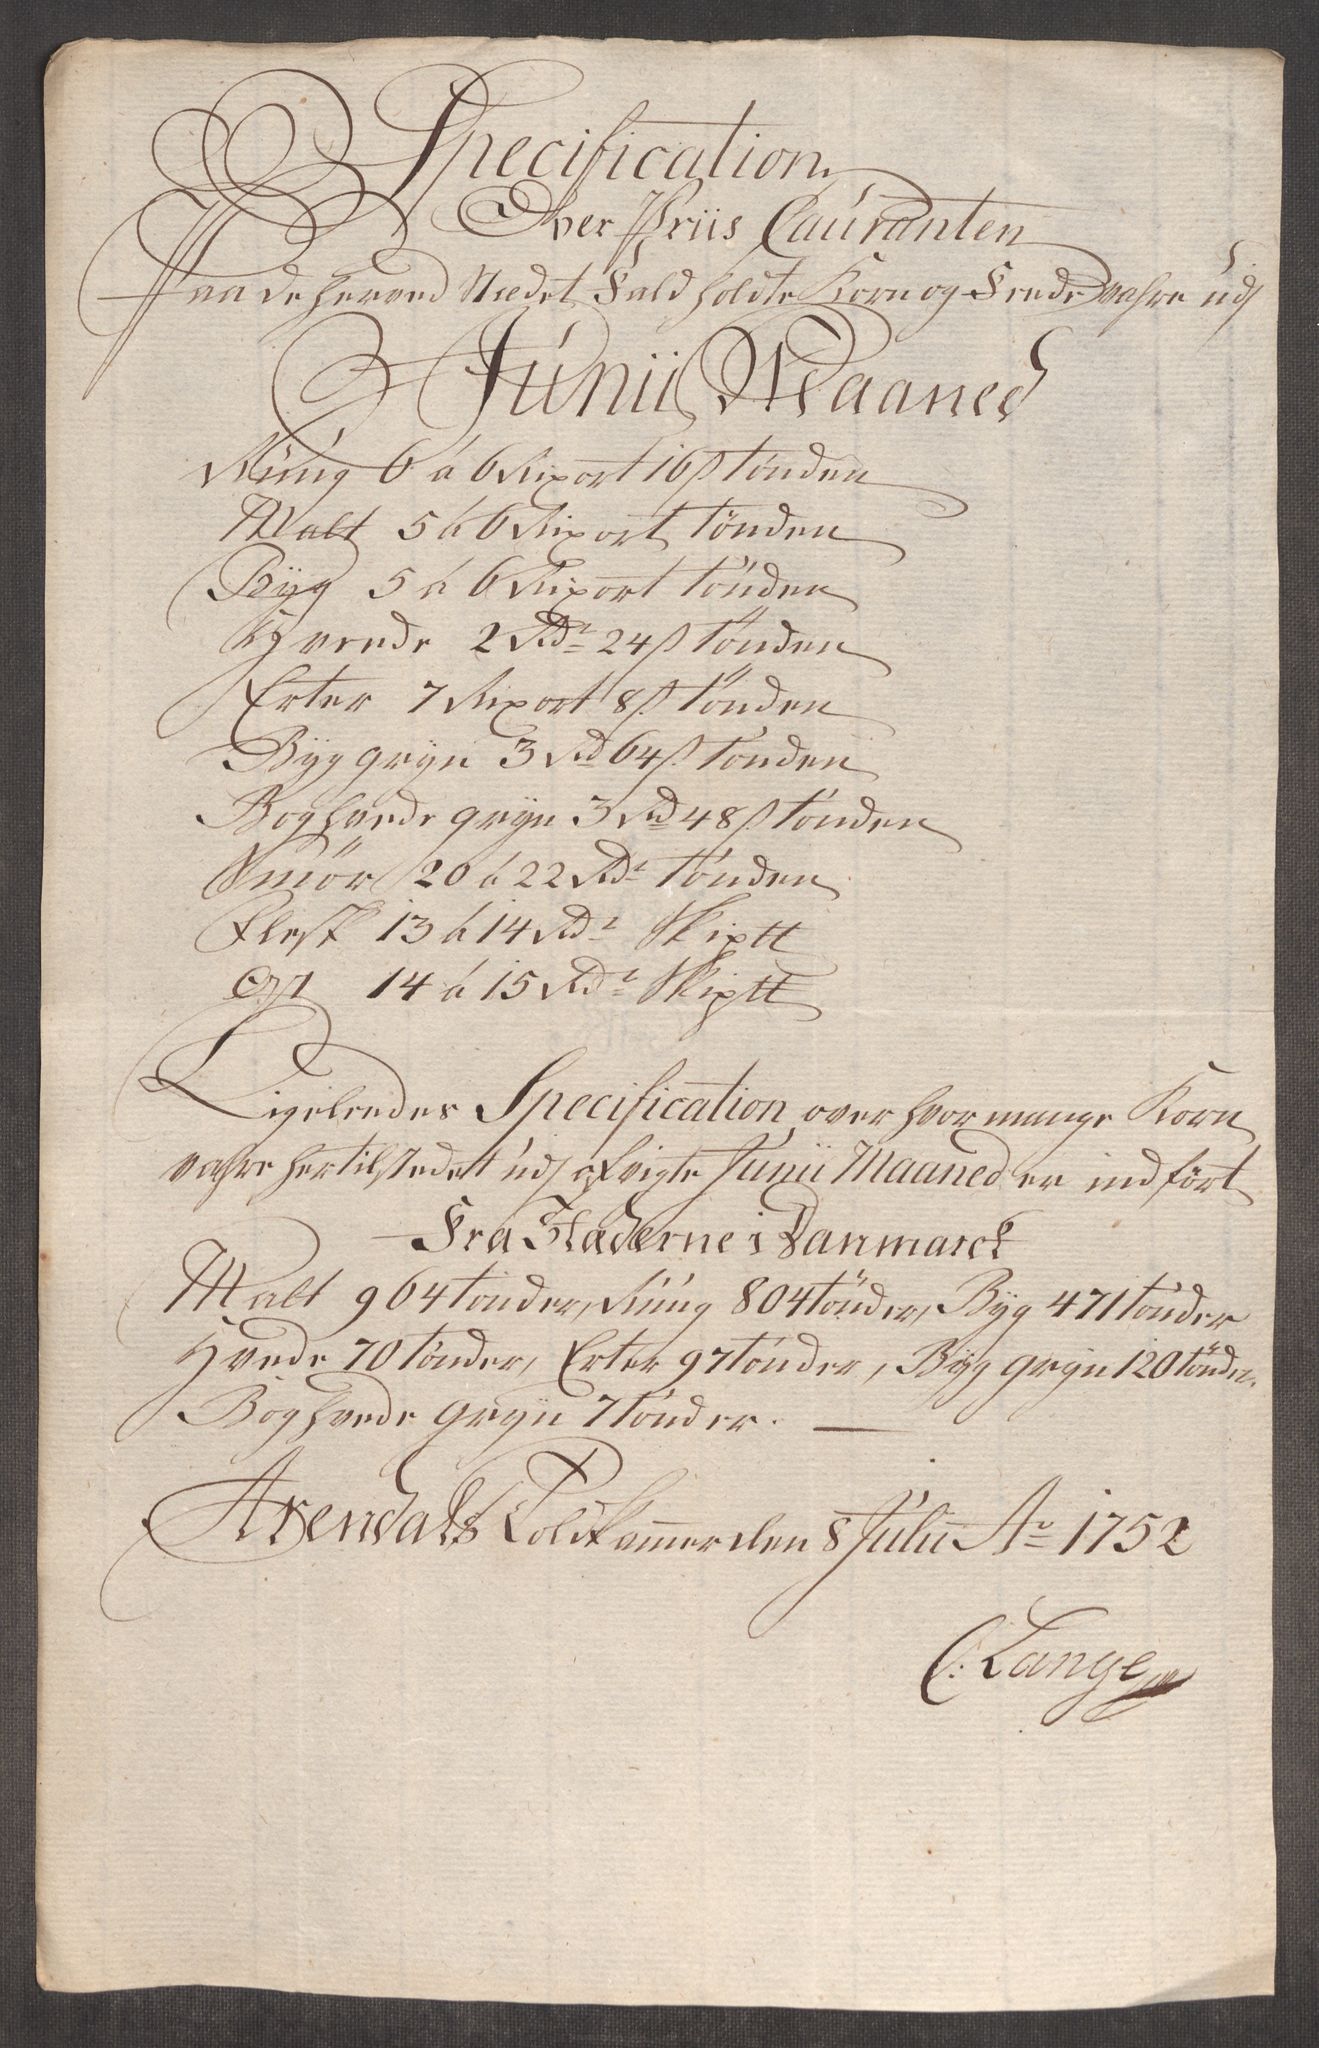 Specification
Over Priis Couranten
Paa de herved Stædet Fald holdte Korn og Feede vahre udj
Junii Maaned
Rüug 6 a 6 Rixort 16 s tønden
Malt 5 á 6 Rixort tönden
Byg 5 á 6 Rixort tönden
Hveede 2 Rdr 24 s tönden
Erter 7 Rixort 8 s tönden
Byg gryn 3 Rd 64 s tønden
Boghvede gryn 3 Rd 48 s tønden
Smör 20 á 22 Rdr tønden
Flesk 13 á 14 Rdr Skiptt
14 á 15 Rdr Skiptt
Ligeleedes Specification over hvor mange Korn
vahre hertilstedet udj afvigte Junii Maaned er indført
Fra Stæderne i Danmarck
Malt 964 tønder, Rüug 804 tönder, Byg 471 tønder
Hvede 70 tønder, Erter 97 tønder, Byg gryn 120 tönder
Boghvede gryn 7 tønder.
Arendals Toldkammer den 8 Julii Ao 1752
C: Lange